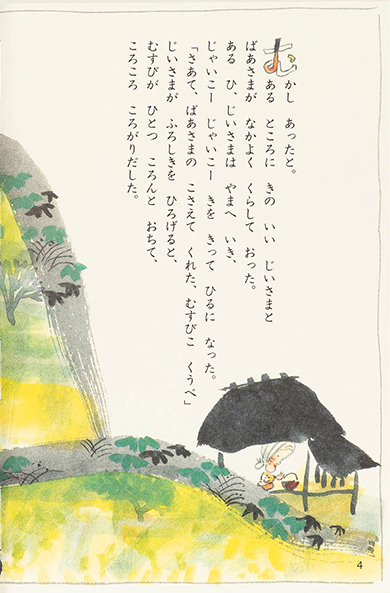 むかし あったと。
ある ところに きの いい じいさまと
ばあさまが なかよく くらして おった。
ある ひ、じいさまは やまへ いき、
じゃいこー じゃいこー きを きって ひるに なった。
「さあて、ばあさまの こさえて くれた、むすびこ くうべ」
じいさまが ふろしきを ひろげると、
むすびが ひとつ ころんと おちて、
ころころ ころがりだした。
4